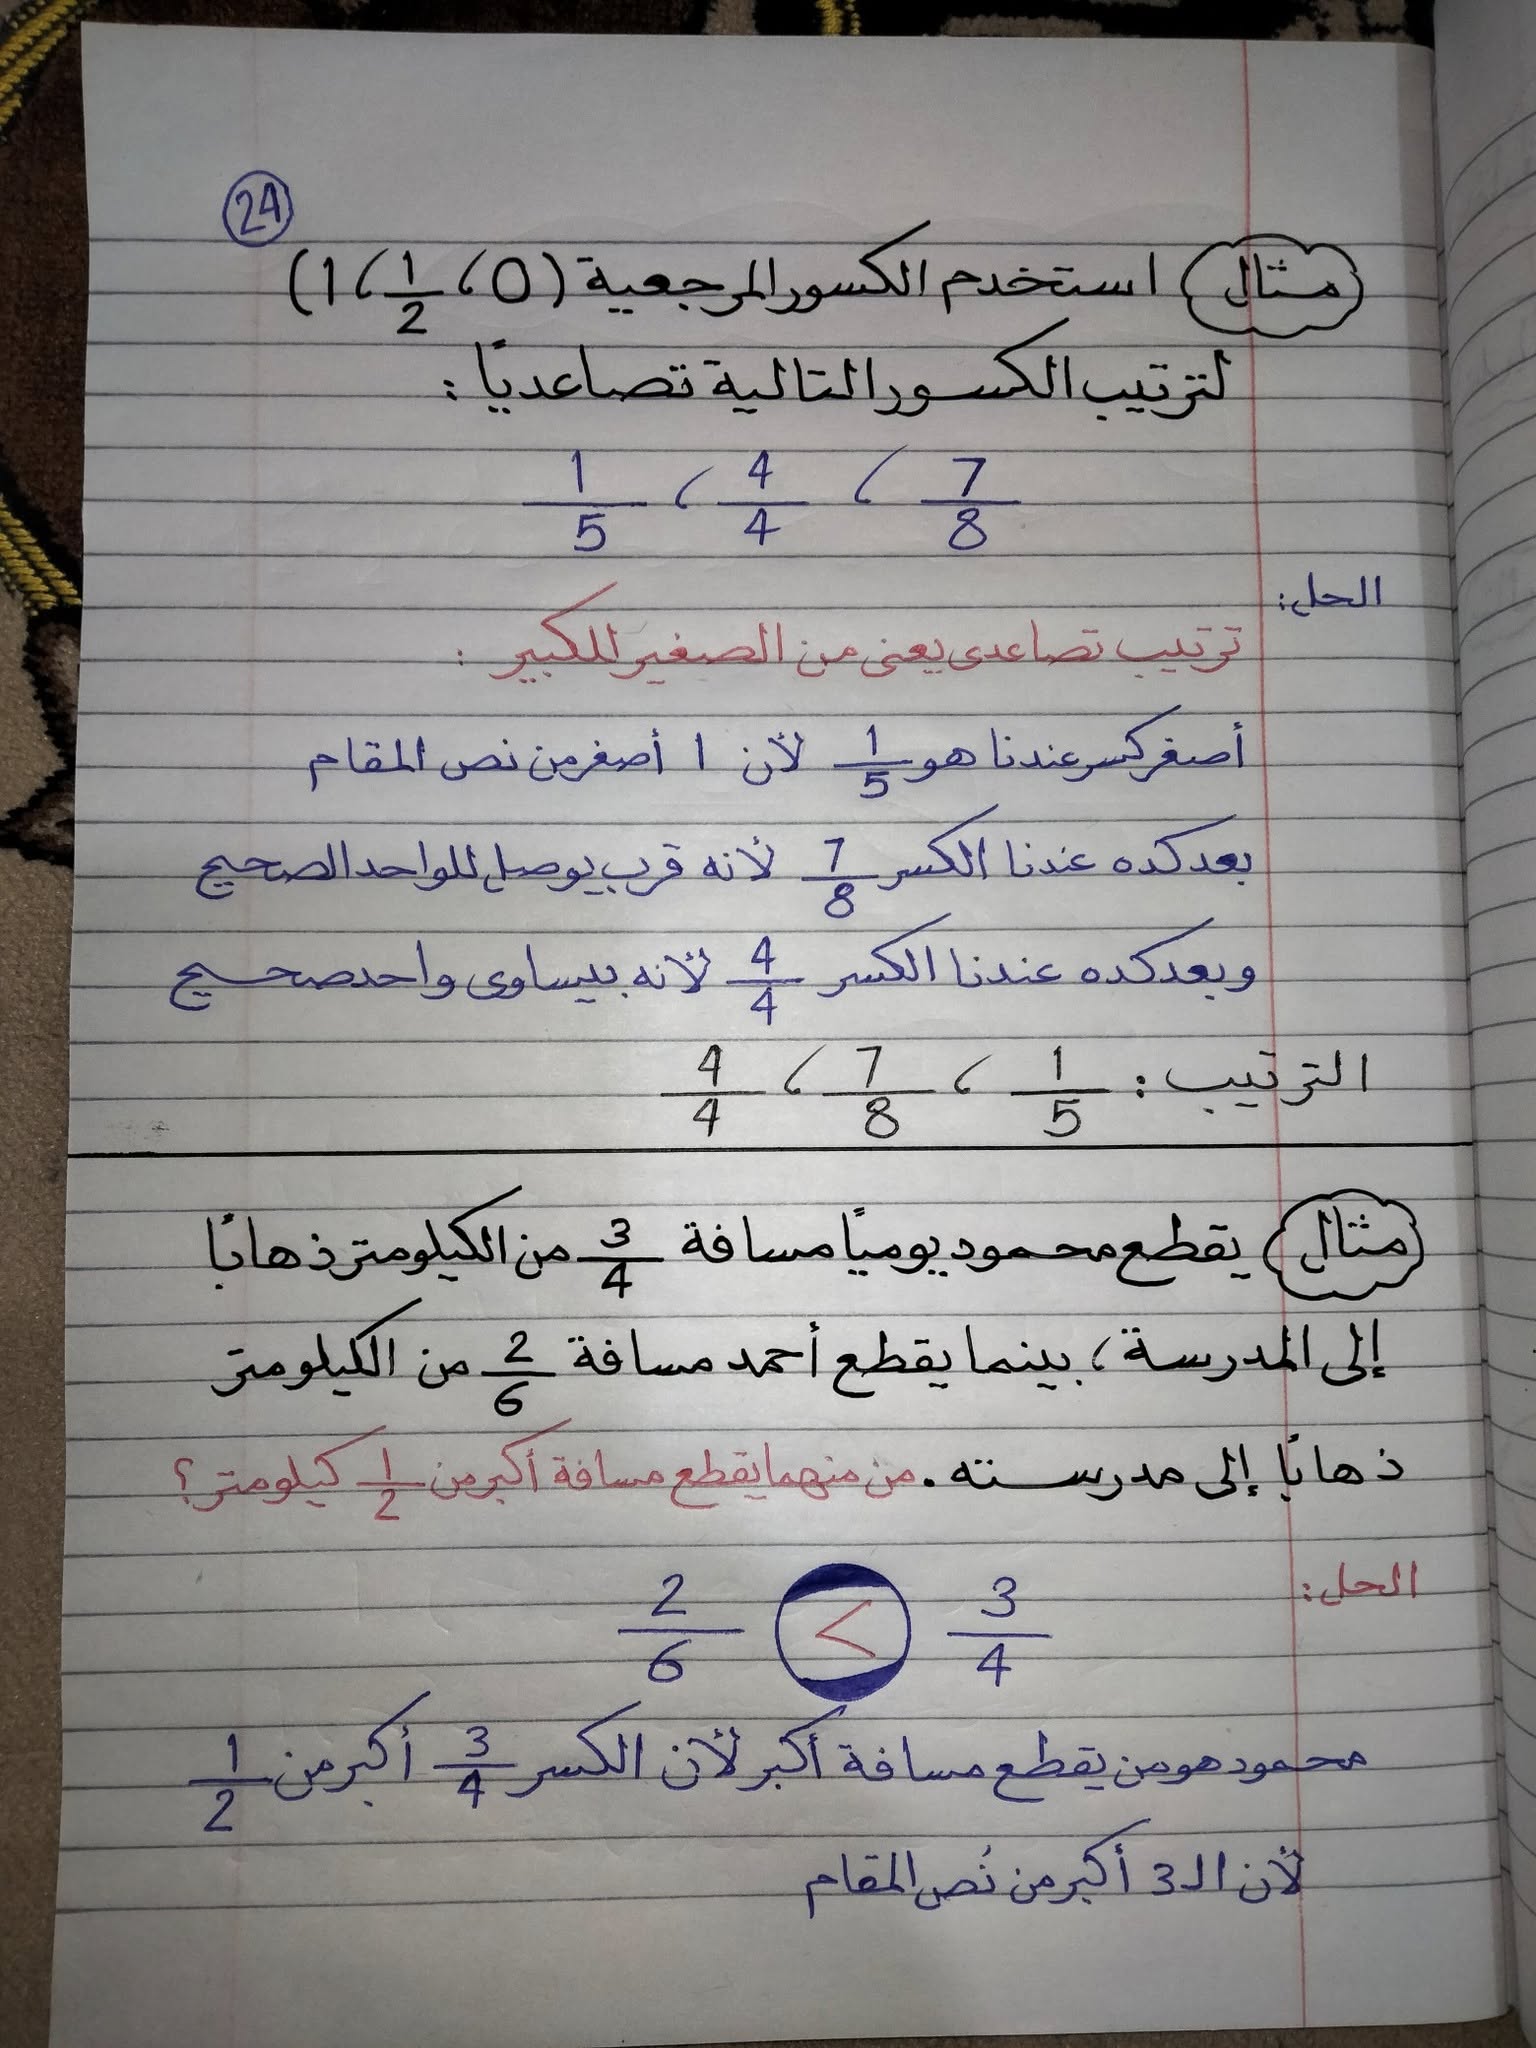 24
مثال استخدم الكسور المرجعية (0، 1/2، 1)
لترتيب الكسور التالية تصاعديًا :
7/8 ، 4/4 ، 1/5
الحل:
ترتيب تصاعدى يعنى من الصغير للكبير :
أصغر كسر عندنا هو 1/5 لأن 1 أصغر من نص المقام
بعد كده عندنا الكسر 7/8 لأنه قرب يوصل للواحد الصحيح
وبعد كده عندنا الكسر 4/4 لأنه بيساوى واحد صحيح
الترتيب : 1/5 ، 7/8 ، 4/4
مثال يقطع محمود يوميًا مسافة 3/4 من الكيلومتر ذهابًا
إلى المدرسة ، بينما يقطع أحمد مسافة 2/6 من الكيلومتر
ذهابًا إلى مدرسته . من منهما يقطع مسافة أكبر من 1/2 كيلومتر ؟
الحل:
3/4 > 2/6
محمود هو من يقطع مسافة أكبر لأن الكسر 3/4 أكبر من 1/2
لأن الـ 3 أكبر من نُص المقام